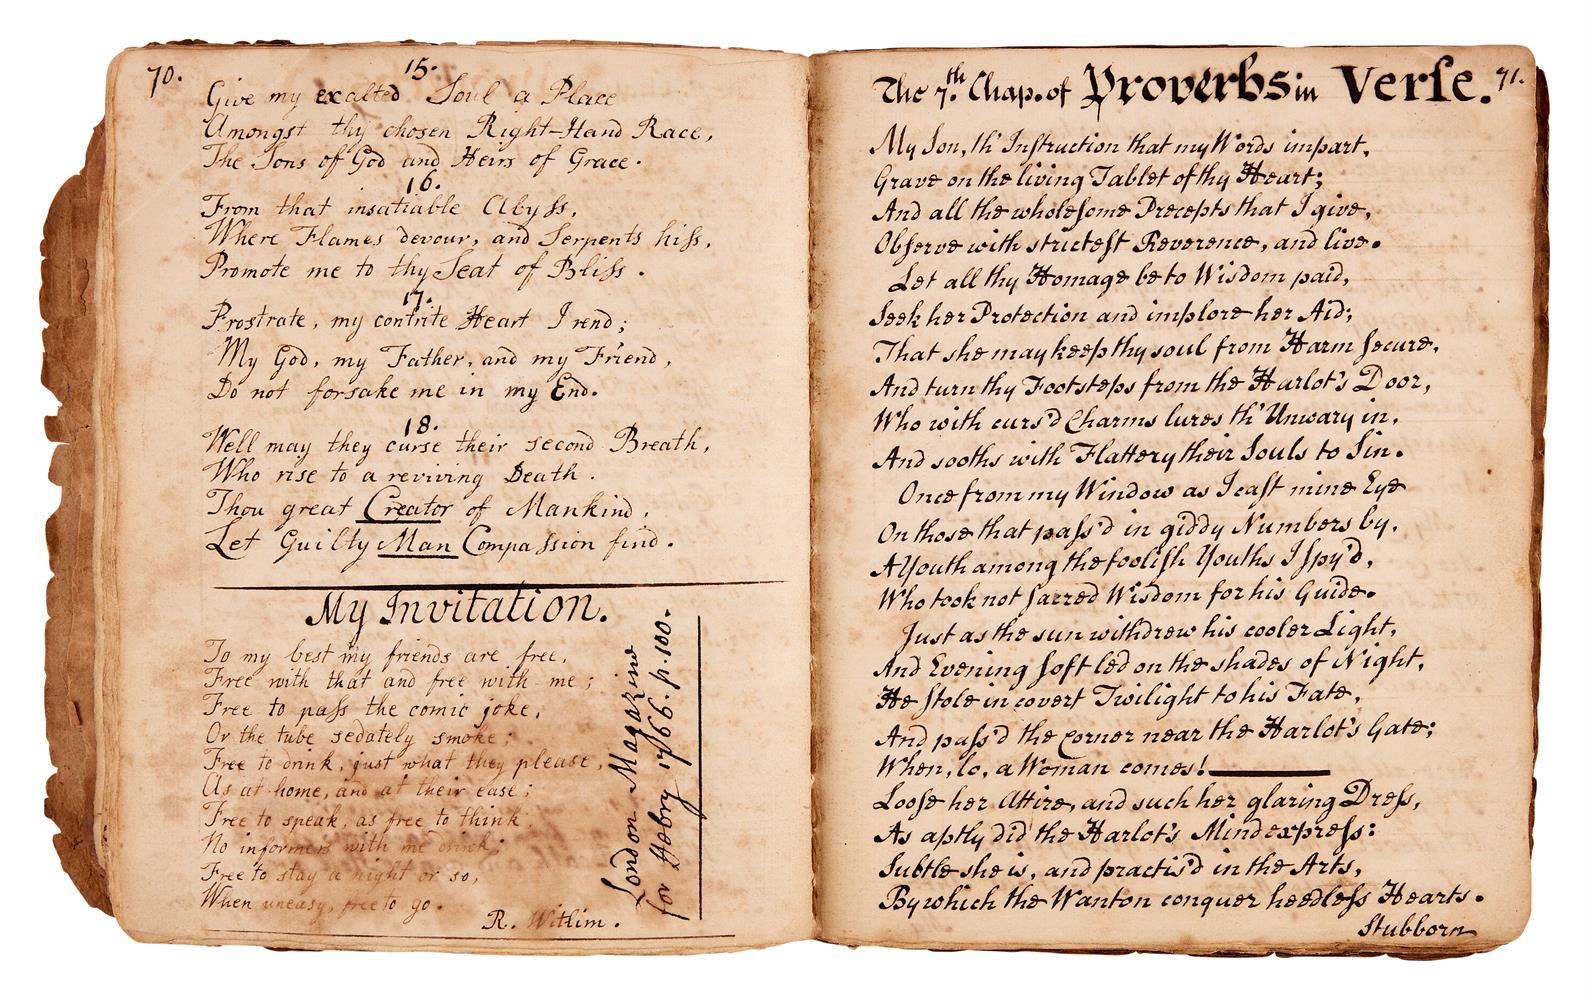 70.
15.
Give my exalted Soul a Place
Amongst thy chosen Right-Hand Race,
The Sons of God and Heirs of Grace.
16.
From that insatiable Abyss,
Where Flames devour, and Serpents hiss,
Promote me to thy Seat of Bliss.
17.
Prostrate, my contrite Heart I rend;
My God, my Father, and my Friend,
Do not forsake me in my End.
18.
Well may they curse their second Breath,
Who rise to a reviving Death.
Thou great Creator of Mankind,
Let Guilty Man Compassion find.
My Invitation.
To my best my friends are free,
Free with that and free with me;
Free to pass the comic joke,
Or the tube sedately smoke;
Free to drink, just what they please,
As at home, and at their ease;
Free to speak, as free to think;
No informers with me drink;
Free to stay a night or so,
When uneasy, free to go.
R. Witlim.
London Magazine
for Febry 1766. p. 100.
The 7th. Chap. of Proverbs in Verse.
71.
My Son, th' Instruction that my Words impart,
Grave on the living Tablet of thy Heart;
And all the wholesome Precepts that I give,
Observe with strictest Reverence, and live.
Let all thy Homage be to Wisdom paid,
Seek her Protection and implore her Aid;
That she may keep thy soul from Harm secure,
And turn thy Footsteps from the Harlot's Door,
Who with curs'd Charms lures th' Unwary in,
And sooths with Flattery their Souls to Sin.
Once from my Window as I cast mine Eye
On those that pass'd in giddy Numbers by,
A Youth among the foolish Youths I spy'd,
Who took not sacred Wisdom for his Guide.
Just as the sun withdrew his cooler Light,
And Evening soft led on the shades of Night,
He stole in covert Twilight to his Fate,
And pass'd the corner near the Harlot's Gate;
When, lo, a Woman comes!
Loose her Attire, and such her glaring Dress,
As aptly did the Harlot's Mind express:
Subtle she is, and practis'd in the Arts,
By which the Wanton conquer heedless Hearts.
Stubborn